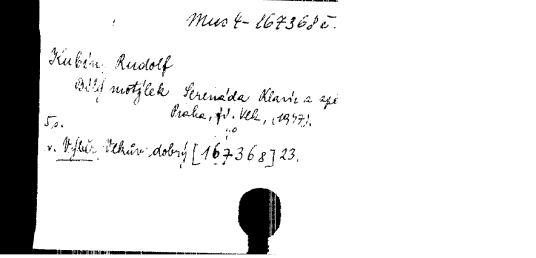 Mus 4-167368 č.
Kubín, Rudolf
Bílý motýlek Serenáda Klavír a zpě
Praha, Fr. Vlk, (1947).
5 s.
v. Výběr Vlkův dobrý [167368] 23.